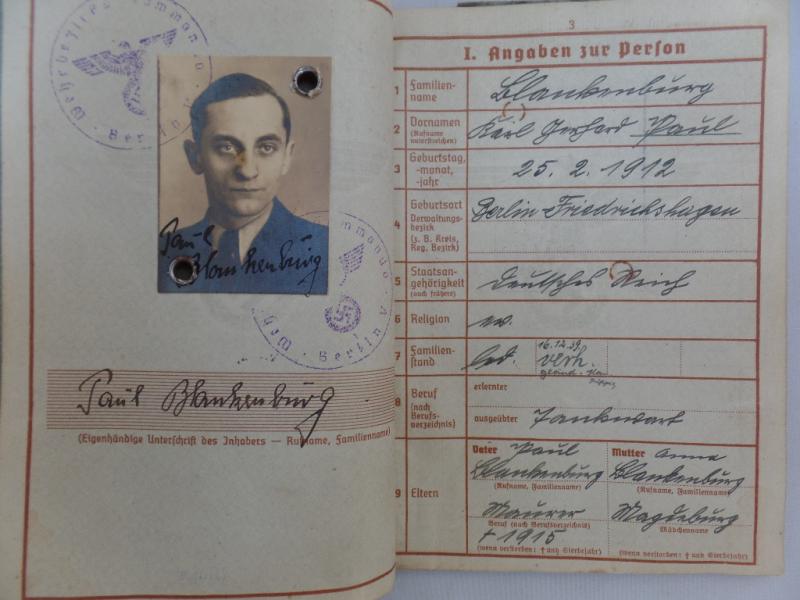 Wehrbezirkskommando
Paul
Blankenburg
Paul Blankenburg
(Eigenhändige Unterschrift des Inhabers — Rufname, Familienname)
3
I. Angaben zur Person
1 Familien-
name
Blankenburg
2 Vornamen
(Rufname
unterstreichen)
Karl Gerhard Paul
3 Geburtstag,
-monat,
-jahr
25. 2. 1912
4 Geburtsort
Verwaltungs-
bezirk
(z. B. Kreis,
Reg. Bezirk)
Berlin-Friedrichshagen
5 Staatsan-
gehörigkeit
(auch frühere)
Deutsches Reich
6 Religion
ev.
7 Familien-
stand
led.
16.12.39
verh.
8 Beruf
(nach
Berufs-
verzeichnis)
erlernter
ausgeübter
Tankwart
9 Eltern
Vater Paul
Blankenburg
(Rufname, Familienname)
Maurer
Beruf (nach Berufsverzeichnis)
† 1915
(wenn verstorben: † und Sterbejahr)
Mutter Anna
Blankenburg
(Rufname, Familienname)
Magdeburg
Mädchenname
(wenn verstorben: † und Sterbejahr)